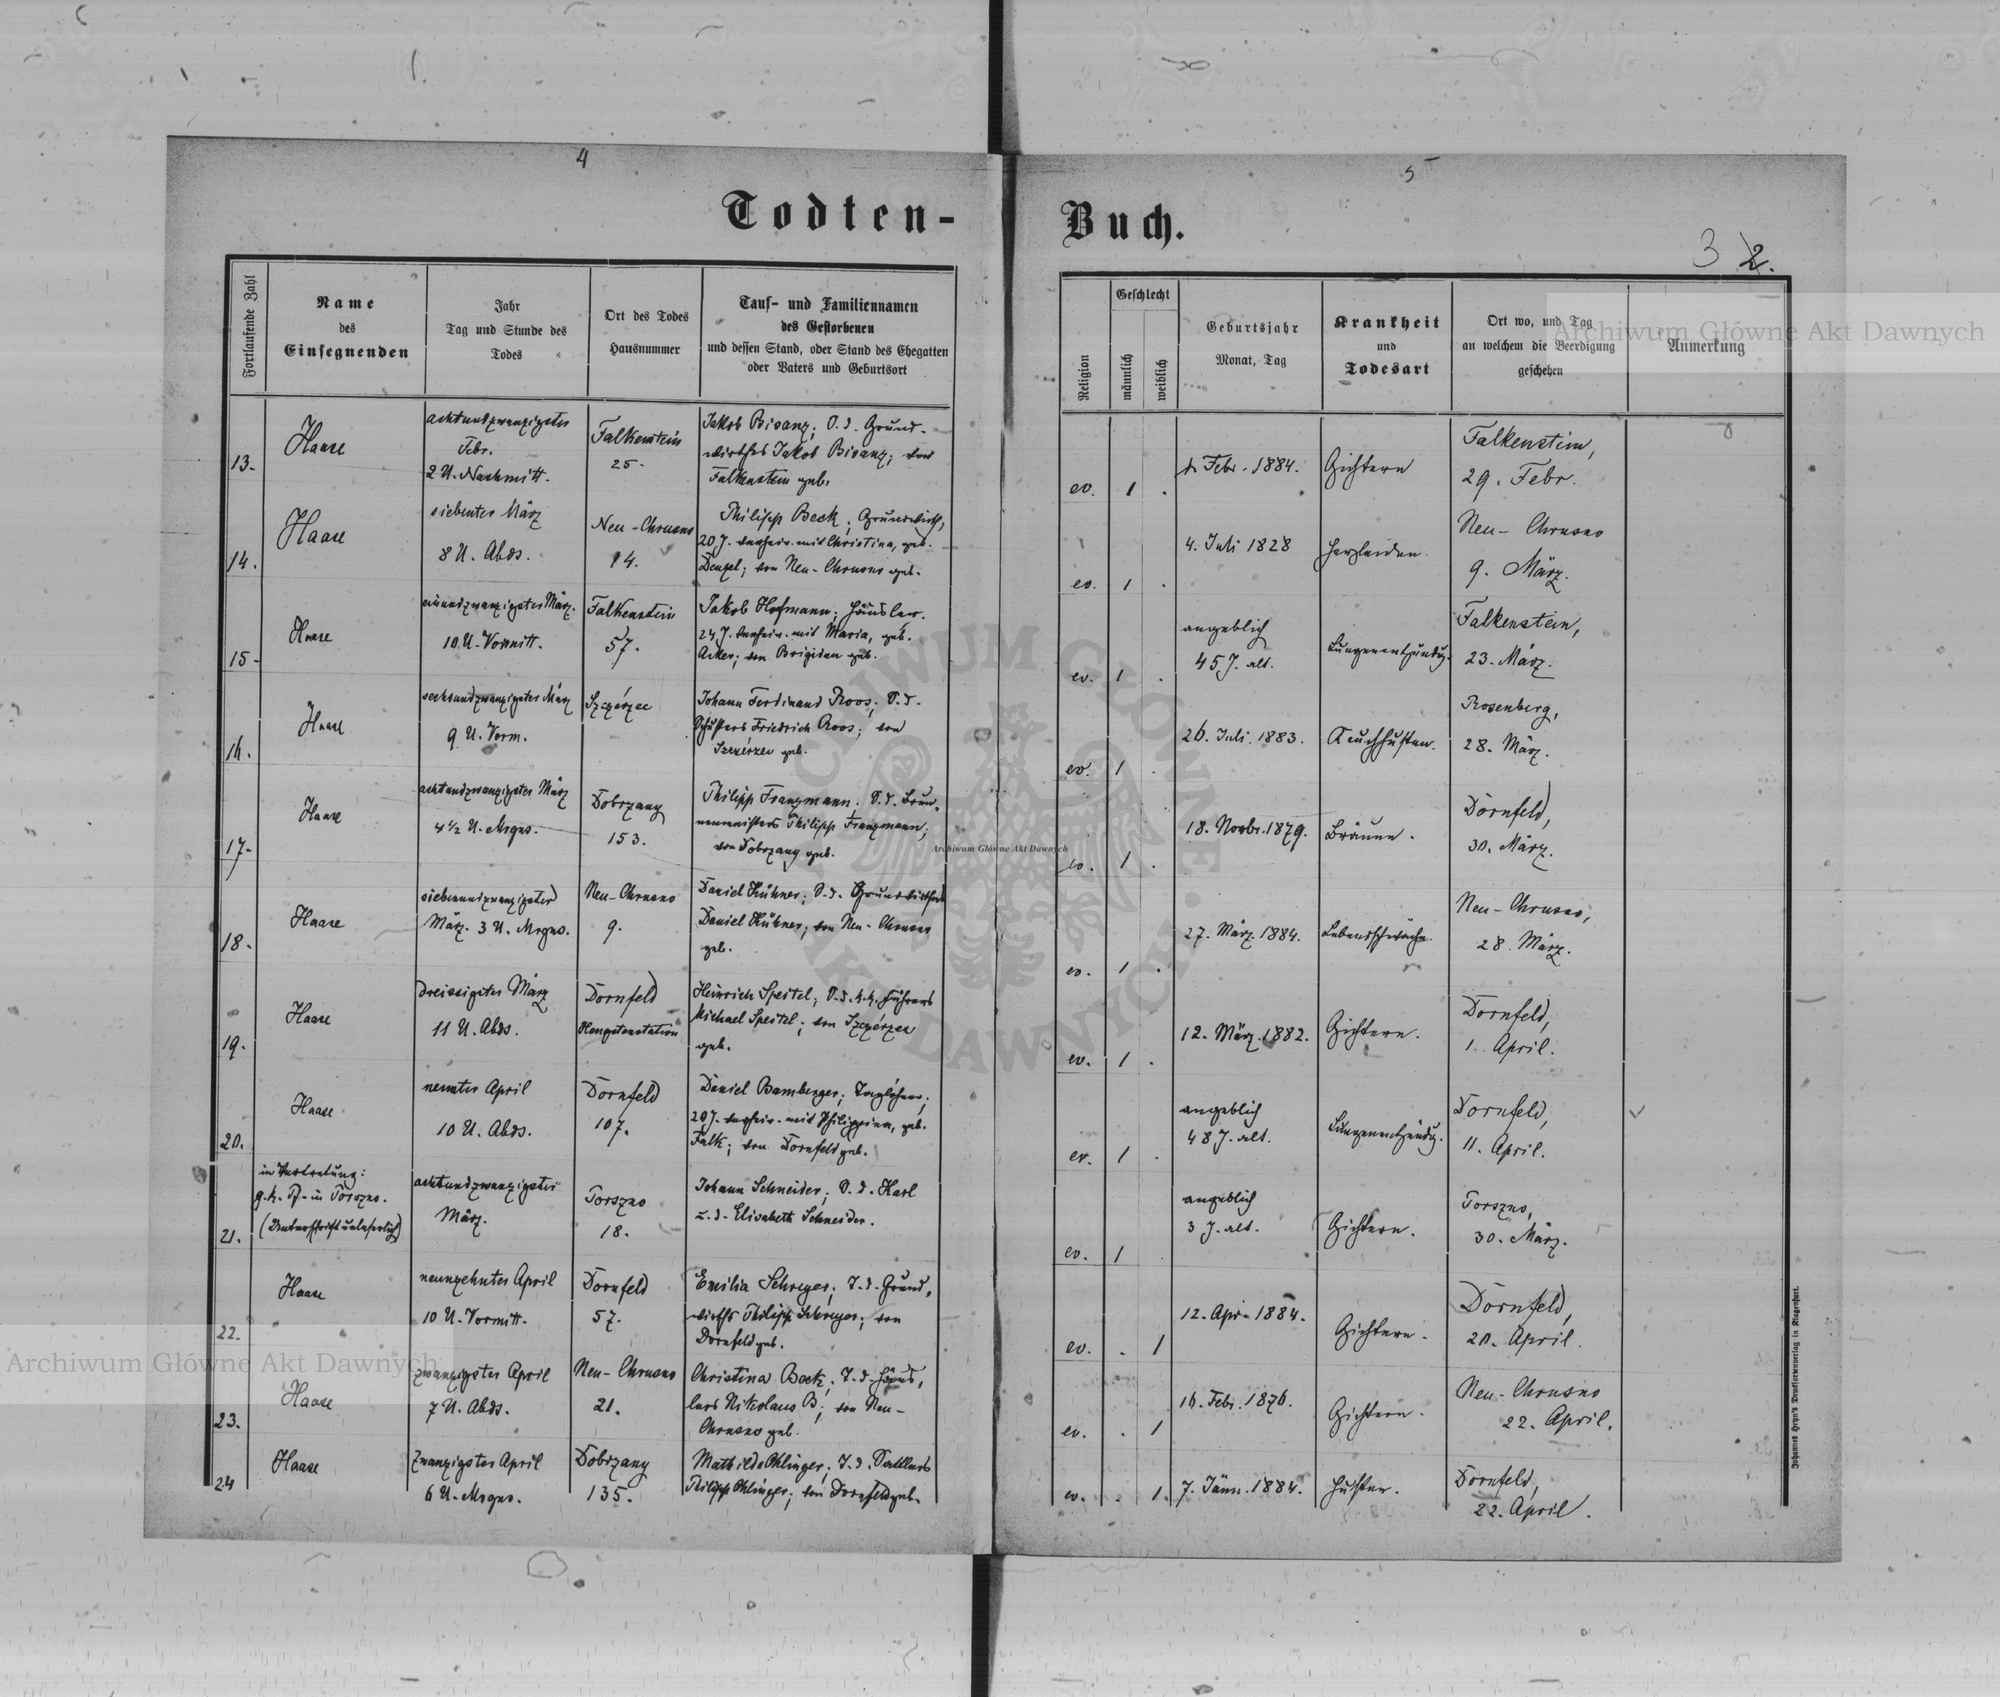 4
5
Todten-
Buch.
3 2.
Fortlaufende Zahl
Name
des
Einsegnenden
Jahr
Tag und Stunde des
Todes
Ort des Todes
Hausnummer
Tauf- und Familiennamen
des Gestorbenen
und dessen Stand, oder Stand des Ehegatten
oder Vaters und Geburtsort
Religion
Geschlecht
männlich
weiblich
Geburtsjahr
Monat, Tag
Krankheit
und
Todesart
Ort wo, und Tag
an welchem die Beerdigung
geschehen
Anmerkung
13.
Haase
achtundzwanzigster
Febr.
2 U. Nachmitt.
Falkenstein
25.
Jakob Bisanz; S. d. Grund-
wirthes Jakob Bisanz; von
Falkenstein geb.
ev. 1 .
Febr. 1884.
Gichtern
Falkenstein,
29. Febr.
14.
Haase
siebenter März
8 U. Abds.
Neu-Chrusno
14.
Philipp Beck; Grundwirth,
20 J. verheir. mit Christina, geb.
Dengel; von Neu-Chrusno geb.
ev. 1 .
4. Juli 1828
Herzleiden.
Neu-Chrusno
9. März.
15.
Haase
einundzwanzigster März.
10 U. Vormitt.
Falkenstein
57.
Jakob Hofmann; Häusler.
24 J. verheir. mit Maria, geb.
Acker; von Brigidau geb.
ev. 1 .
angeblich
45 J. alt.
Lungenentzündg.
Falkenstein,
23. März.
16.
Haase
sechsundzwanzigster März
9 U. Vorm.
Szczérzec
Johann Ferdinand Roos; S. d.
Schusters Friedrich Roos; von
Szczérzec geb.
ev. 1 .
26. Juli. 1883.
Keuchhusten.
Rosenberg,
28. März.
17.
Haase
achtundzwanzigster März
4 1/2 U. Mrgns.
Dobrzany
153.
Philipp Franzmann; S. d. Brun-
nenmeisters Philipp Franzmann;
von Dobrzany geb.
ev. 1 .
18. Novbr. 1879.
Bräune.
Dornfeld,
30. März.
18.
Haase
siebenundzwanzigster
März. 3 U. Mrgns.
Neu-Chrusno
9.
Daniel Kühner; S. d. Grundwirthes
Daniel Kühner; von Neu-Chrusno
geb.
ev. 1 .
27. März. 1884.
Lebensschwäche.
Neu-Chrusno,
28. März.
19.
Haase
dreissigster März
11 U. Abds.
Dornfeld
Hengstenstation
Heinrich Speitel; S. d. k. k. Führers
Michael Speitel; von Szczérzec
geb.
ev. 1 .
12. März. 1882.
Gichtern.
Dornfeld,
1. April.
20.
Haase
neunter April
10 U. Abds.
Dornfeld
107.
Daniel Bamberger; Taglöhner;
20 J. verheir. mit Philippina, geb.
Falk; von Dornfeld geb.
ev. 1 .
angeblich
48 J. alt.
Lungenentzündg.
Dornfeld,
11. April.
21.
in Vertretung:
g. k. Pf. in Torszno.
(Unterschrift unleserlich)
achtundzwanzigster
März.
Torszno
18.
Johann Schneider; S. d. Karl
u. d. Elisabeth Schneider.
ev. 1
angeblich
3 J. alt.
Gichtern.
Torszno,
30. März.
22.
Haase
neunzehnter April
10 U. Vormitt.
Dornfeld
57.
Emilia Schreyer; T. d. Grund-
wirths Philipp Schreyer; von
Dornfeld geb.
ev. . 1
12. Apr. 1884.
Gichtern.
Dornfeld,
20. April.
23.
Haase
zwanzigster April
7 U. Abds.
Neu-Chrusno
21.
Christina Beck; T. d. Häus-
lers Nikolaus B; von Neu-
Chrusno geb.
ev. . 1
16. Febr. 1876.
Gichtern.
Neu-Chrusno
22. April.
24
Haase
Zwanzigster April
6 U. Mrgns.
Dobrzany
135.
Mathilde Ohlinger; T. d. Sattlers
Philipp Ohlinger; von Dornfeld geb.
ev. . 1.
7. Jänn. 1884.
Husten.
Dornfeld,
22. April.
Johannes Heyn's Drucksortenverlag in Klagenfurt.
Archiwum Główne Akt Dawnych
Archiwum Główne Akt Dawnych
Archiwum Główne Akt Dawnych
ARCHIWUM GŁÓWNE AKT DAWNYCH